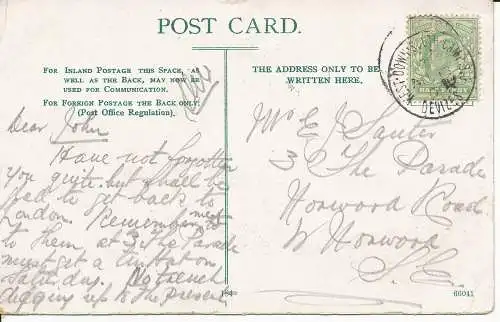 POST CARD.
FOR INLAND POSTAGE THIS SPACE, AS
WELL AS THE BACK, MAY NOW BE
USED FOR COMMUNICATION.
FOR FOREIGN POSTAGE THE BACK ONLY.
(Post Office Regulation).
Dear John
Have not forgotten
you quite but shall be
glad to get back to
London. Remember me
to them at 3 The Parade
must get a tin hat on
Saturday. No trench
digging up to the present
THE ADDRESS ONLY TO BE
WRITTEN HERE.
HALFPENNY
WEST DOWN
DEVI
Mr E J Sauter
3 The Parade
Norwood Road
W Norwood
S.E
66041